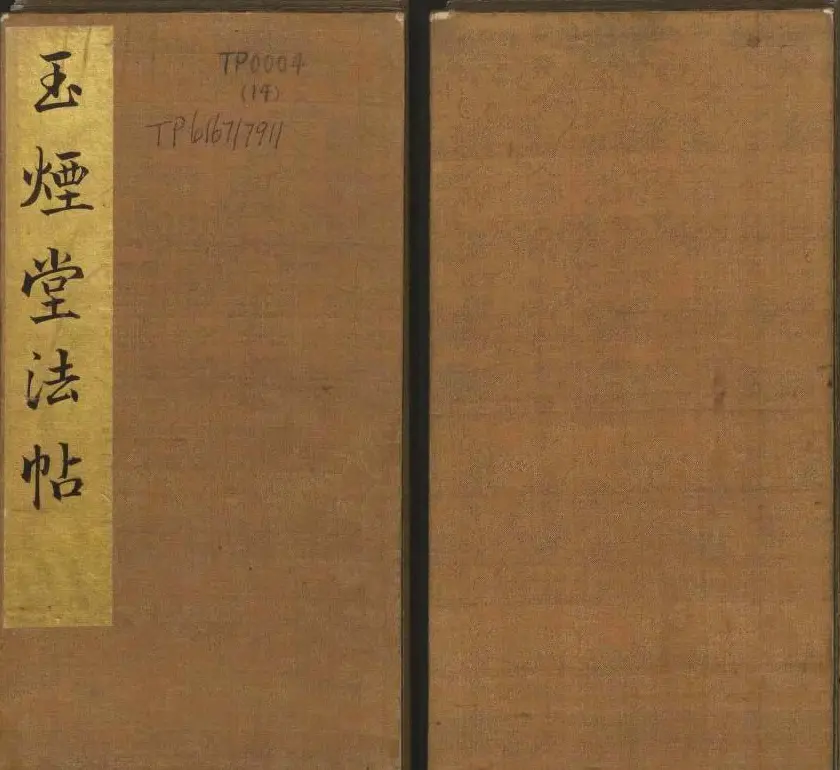 玉煙堂法帖
TP0004
(14)
TP616717911